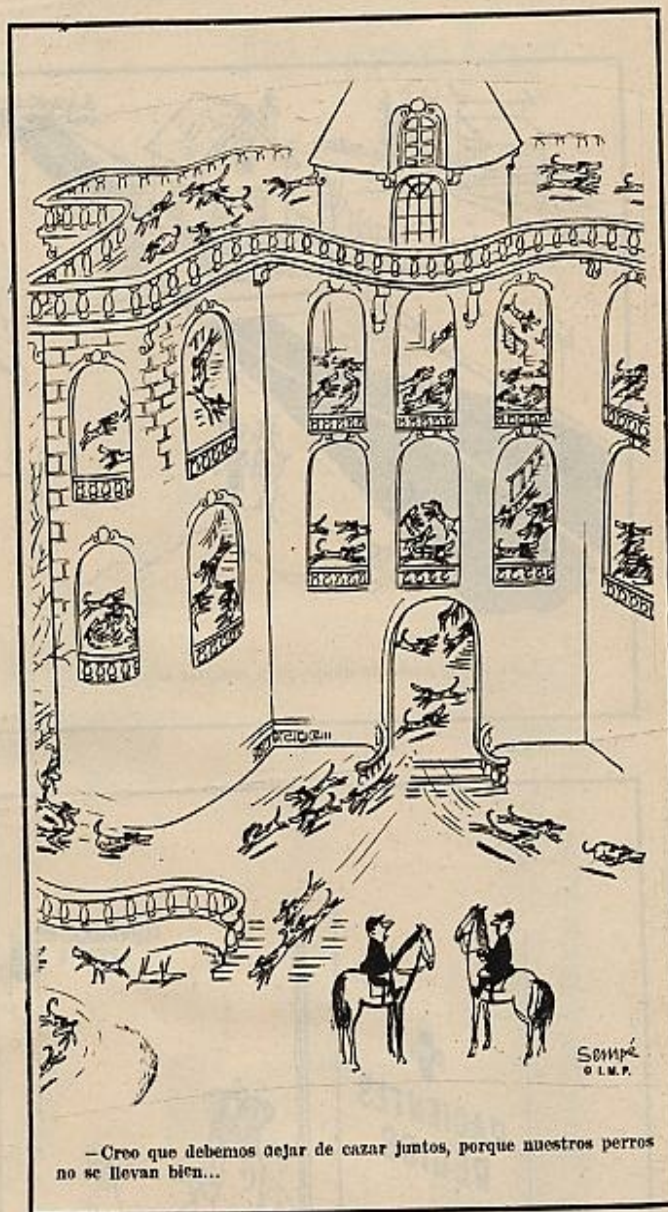 Sempé
© I.M.P.
—Creo que debemos dejar de cazar juntos, porque nuestros perros
no se llevan bien...